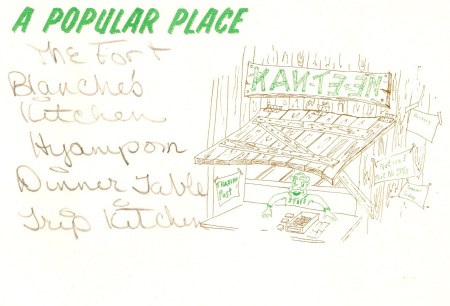 A POPULAR PLACE
The Fort
Blanche's
Kitchen
Hyampom
Dinner Table
Trip Kitchen
KANTEEN
TRADING
Post
STAFF